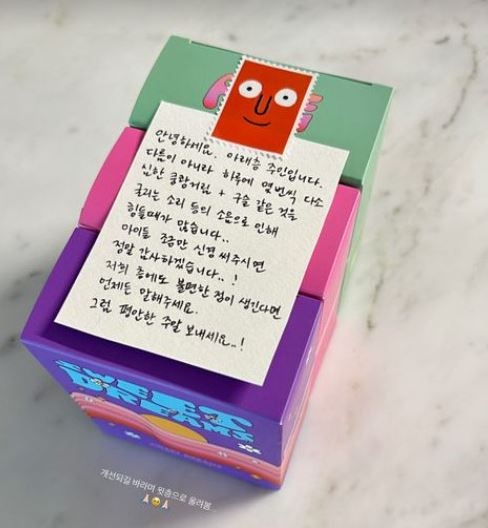 안녕하세요. 아래층 주인입니다.
다름이 아니라 하루에 몇번씩 다소
심한 쿵쾅거림 + 구슬 같은 것을
굴리는 소리 등의 소음으로 인해
힘들때가 많습니다..
아이들 조금만 신경 써주시면
정말 감사하겠습니다..!
저희 층에도 불편한 점이 생긴다면
언제든 말해주세요.
그럼 평안한 주말 보내세요..!
SWEET
DREAMS
개선되길 바라며 윗층으로 올려봄